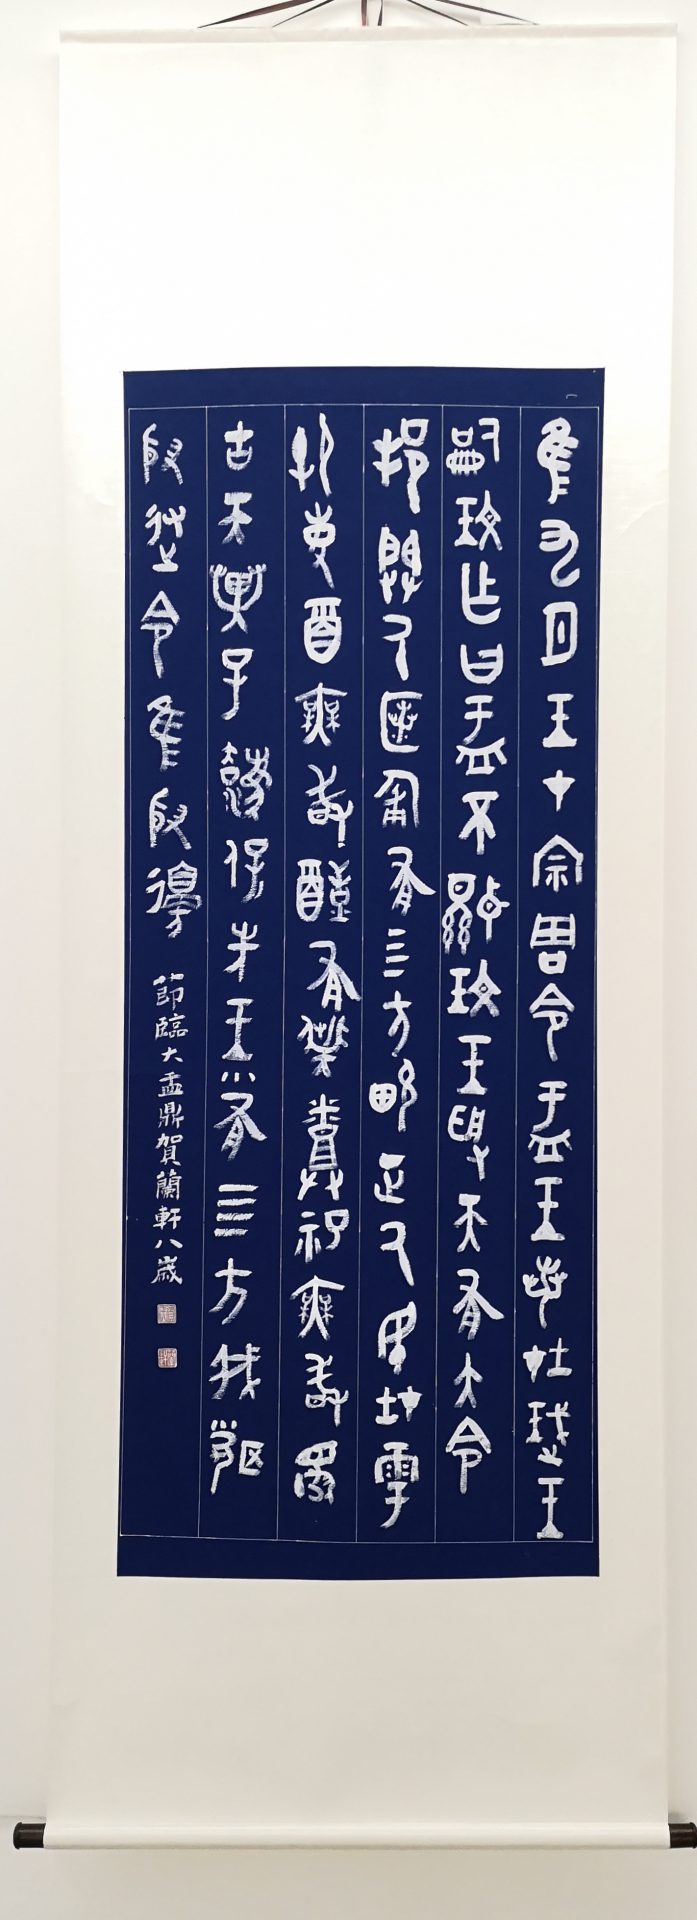 隹九月王才宗周令盂王若在珷王
嗣玟乍曰盂不顯玟王受天有大令
邦闢厥匿匍有四方畯正厥民在雩
御事酉無敢有柴烝祀無敢
古天異子法保先王有四方我聞
殷述令隹殷邊
節臨大盂鼎賀蘭軒八歲